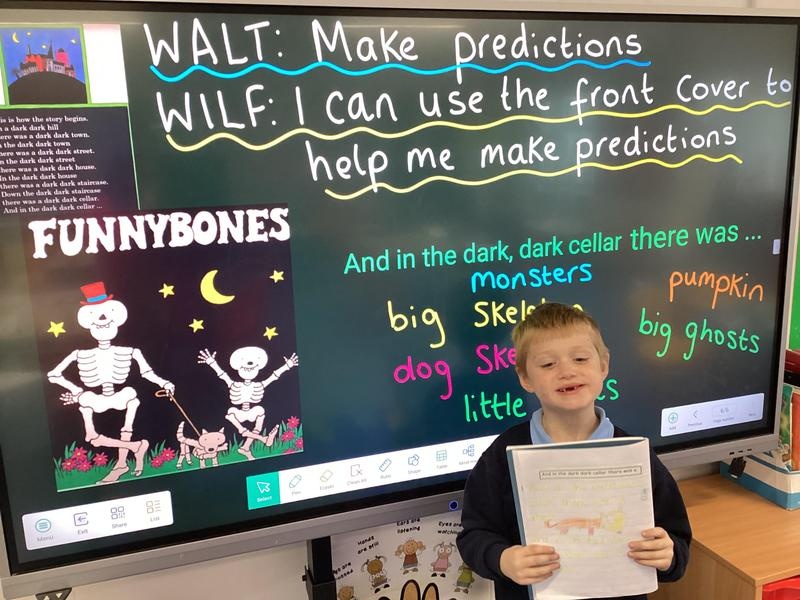 WALT: Make predictions
WILF: I can use the front Cover to
help me make predictions
is is how the story begins.
a dark dark hill
ere was a dark dark town.
the dark dark town
here was a dark dark street.
n the dark dark street
there was a dark dark house.
In the dark dark house
there was a dark dark staircase.
Down the dark dark staircase
there was a dark dark cellar.
And in the dark dark cellar ...
FUNNYBONES
And in the dark, dark cellar there was ...
monsters
pumpkin
big
big ghosts
dog
little
Menu
Exit
Share
List
Select
Pen
Eraser
Clean All
Ruler
Shape
Table
Add
Previous
6/6
Page number
Hands are still
Ears are listening
Eyes are watching
And in the dark dark cellar there was a